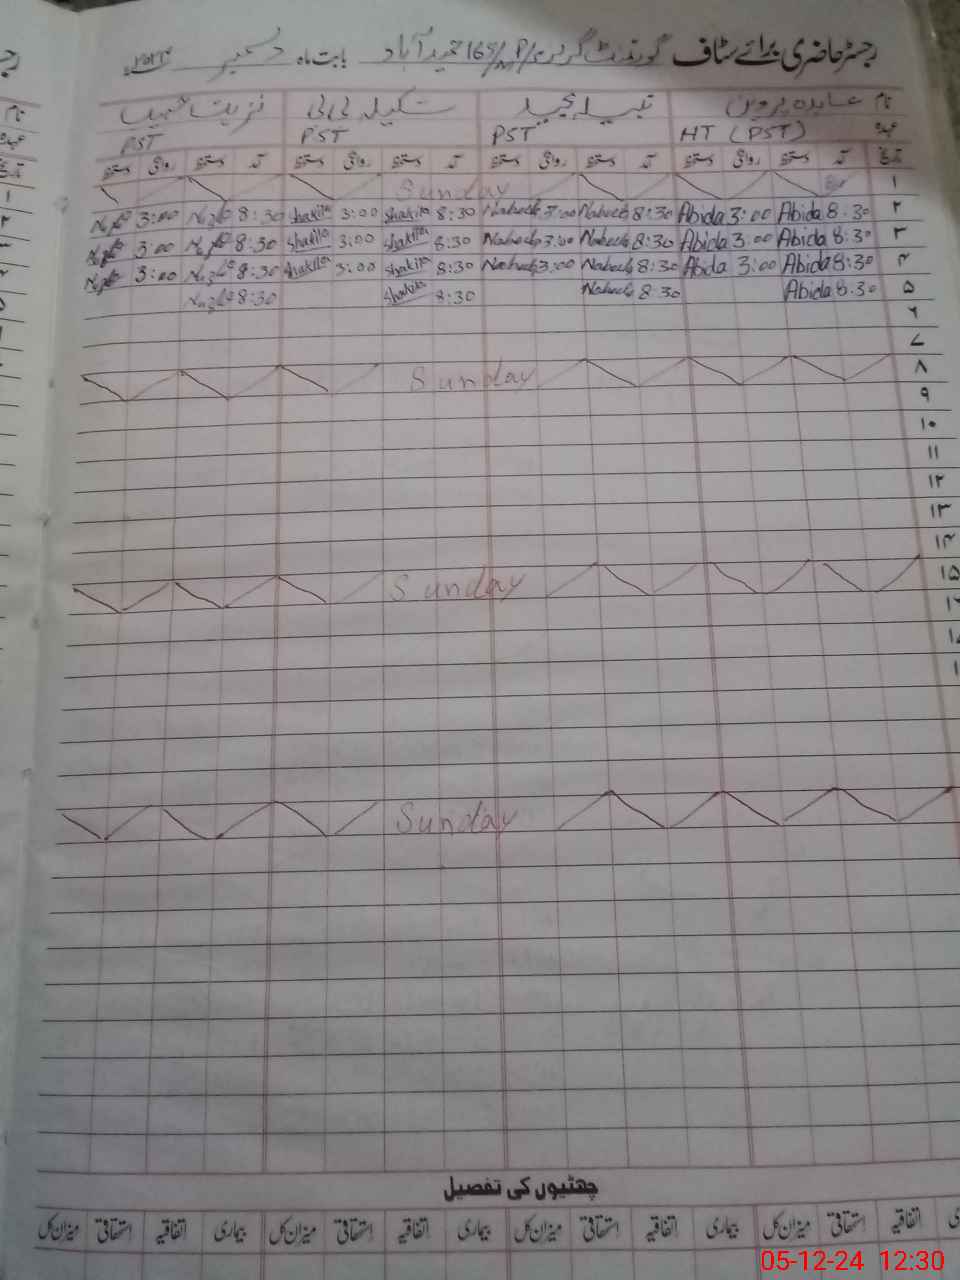 رجسٹر حاضری برائے سٹاف گورنمنٹ گرلز 165/ حمید آباد بابت ماہ دسمبر
نام عابدہ پروین نبیلہ مجید شکیلہ بی بی نزہت
عہدہ HT (PST) PST PST PST
تاریخ آمد دستخط روانگی دستخط آمد دستخط روانگی دستخط آمد دستخط روانگی دستخط آمد دستخط روانگی دستخط
۱ Sunday
3:00 8:30 Shakila 3:00 Shakila 8:30 Nabeela 3:00 Nabeela 8:30 Abida 3:00 Abida 8:30 ۲
3:00 8:30 Shakila 3:00 Shakila 8:30 Nabeela 3:00 Nabeela 8:30 Abida 3:00 Abida 8:30 ۳
3:00 8:30 Shakila 3:00 Shakila 8:30 Nabeela 3:00 Nabeela 8:30 Abida 3:00 Abida 8:30 ۴
8:30 Shakila 8:30 Nabeela 8:30 Abida 8:30 ۵
۶
۷
Sunday ۸
۹
۱۰
۱۱
۱۲
۱۳
۱۴
Sunday ۱۵
Sunday
چھٹیوں کی تفصیل
اتفاقیہ استحقاقی میزان کل بیماری اتفاقیہ استحقاقی میزان کل بیماری اتفاقیہ استحقاقی میزان کل بیماری اتفاقیہ استحقاقی میزان کل
05-12-24 12:30